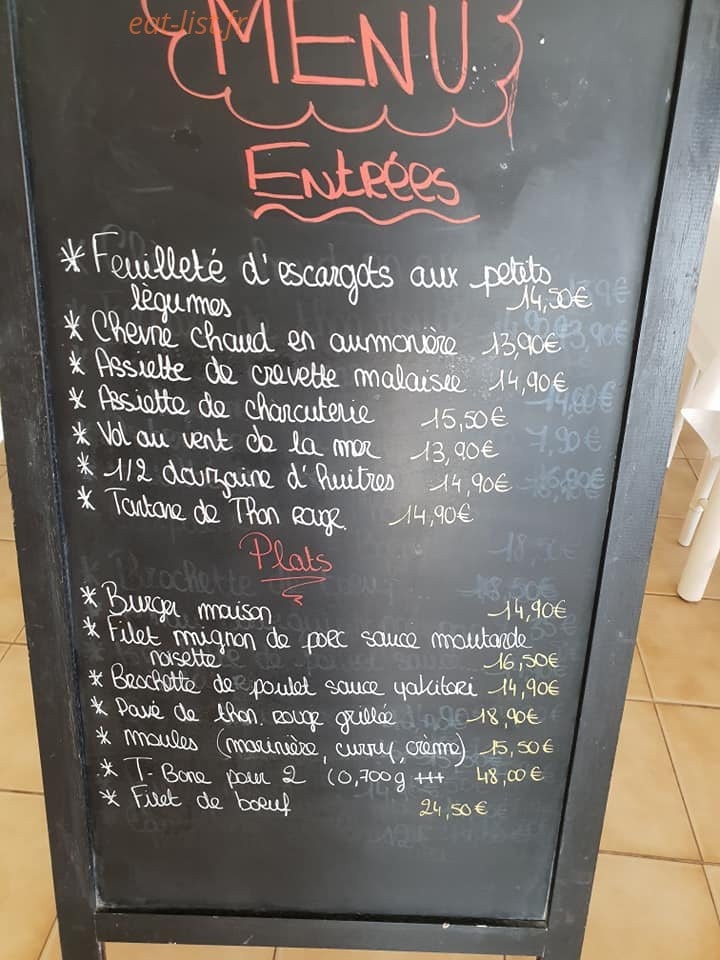 eat-list.fr
MENU
Entrées
* Feuilleté d'escargots aux petits
légumes 14,50€
* Chevre chaud en aumonière 13,90€
* Assiette de crevette malaisie 14,90€
* Assiette de charcuterie 15,50€
* Vol au vent de la mer 13,90€
* 1/2 douzaine d'huitres 14,90€
* Tartare de Thon rouge 14,90€
Plats
* Burger maison 14,90€
* Filet mignon de porc sauce moutarde
noisette 16,50€
* Brochette de poulet sauce yakitori 14,90€
* Pavé de thon rouge grillée 18,90€
* moules (marinière, curry, crème) 15,50€
* T-Bone pour 2 (0,700g +++ 48,00€
* Filet de boeuf 24,50€